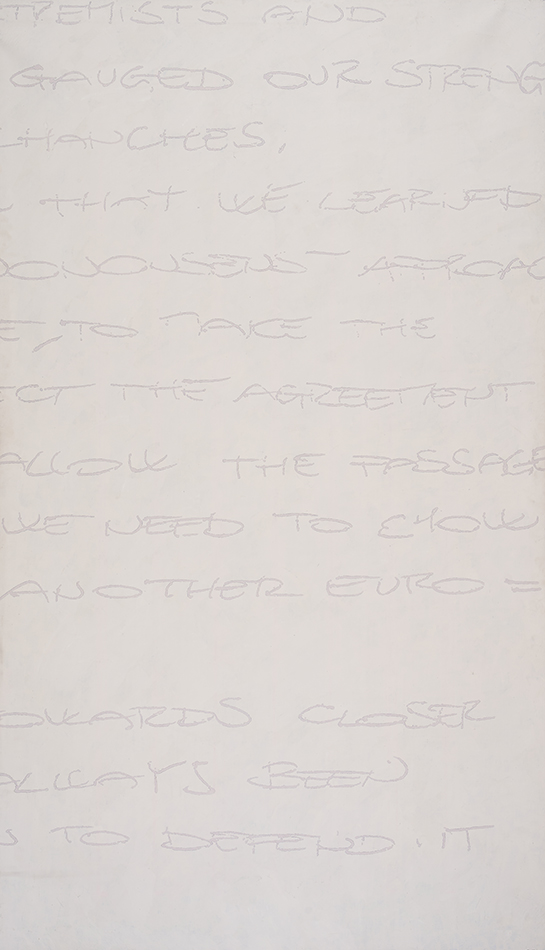 TREMISTS AND
GAUGED OUR STRENG
CHANCHES,
THAT WE LEARNED
APPROAC
E, TO TAKE THE
ECT THE AGREEMENT
ALLOW THE PASSAGE
WE NEED TO CHOW
ANOTHER EURO =
OWARDS CLOSER
ALWAYS BEEN
S TO DEFEND. IT